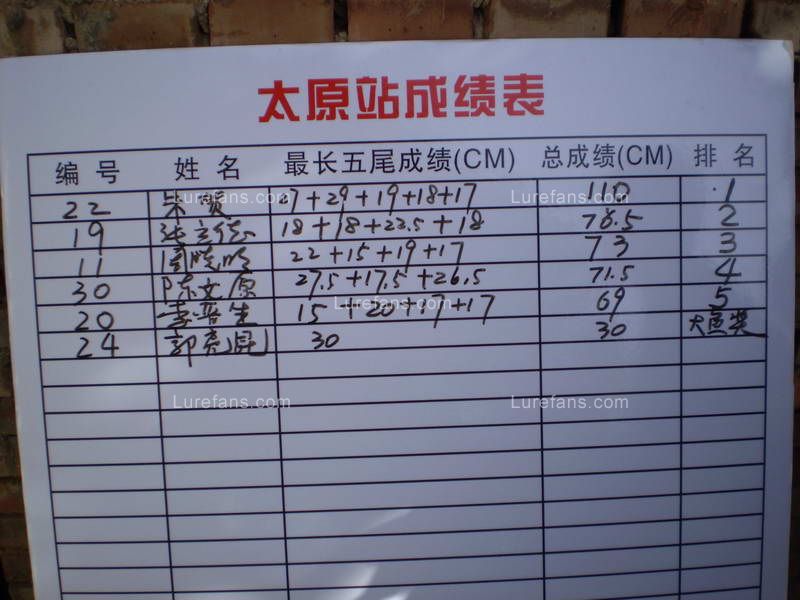 太原站成绩表
编号 姓名 最长五尾成绩(CM) 总成绩(CM) 排名
22 朱 27+29+19+18+17 110 1
19 张 18+18+23.5+18 78.5 2
11 周晓明 22+15+19+17 73 3
30 陈文原 27.5+17.5+26.5 71.5 4
20 李晋生 15+20+17+17 69 5
24 郭亮 30 30 大鱼奖
Lurefans.com Lurefans.com
Lurefans.com
Lurefans.com Lurefans.com